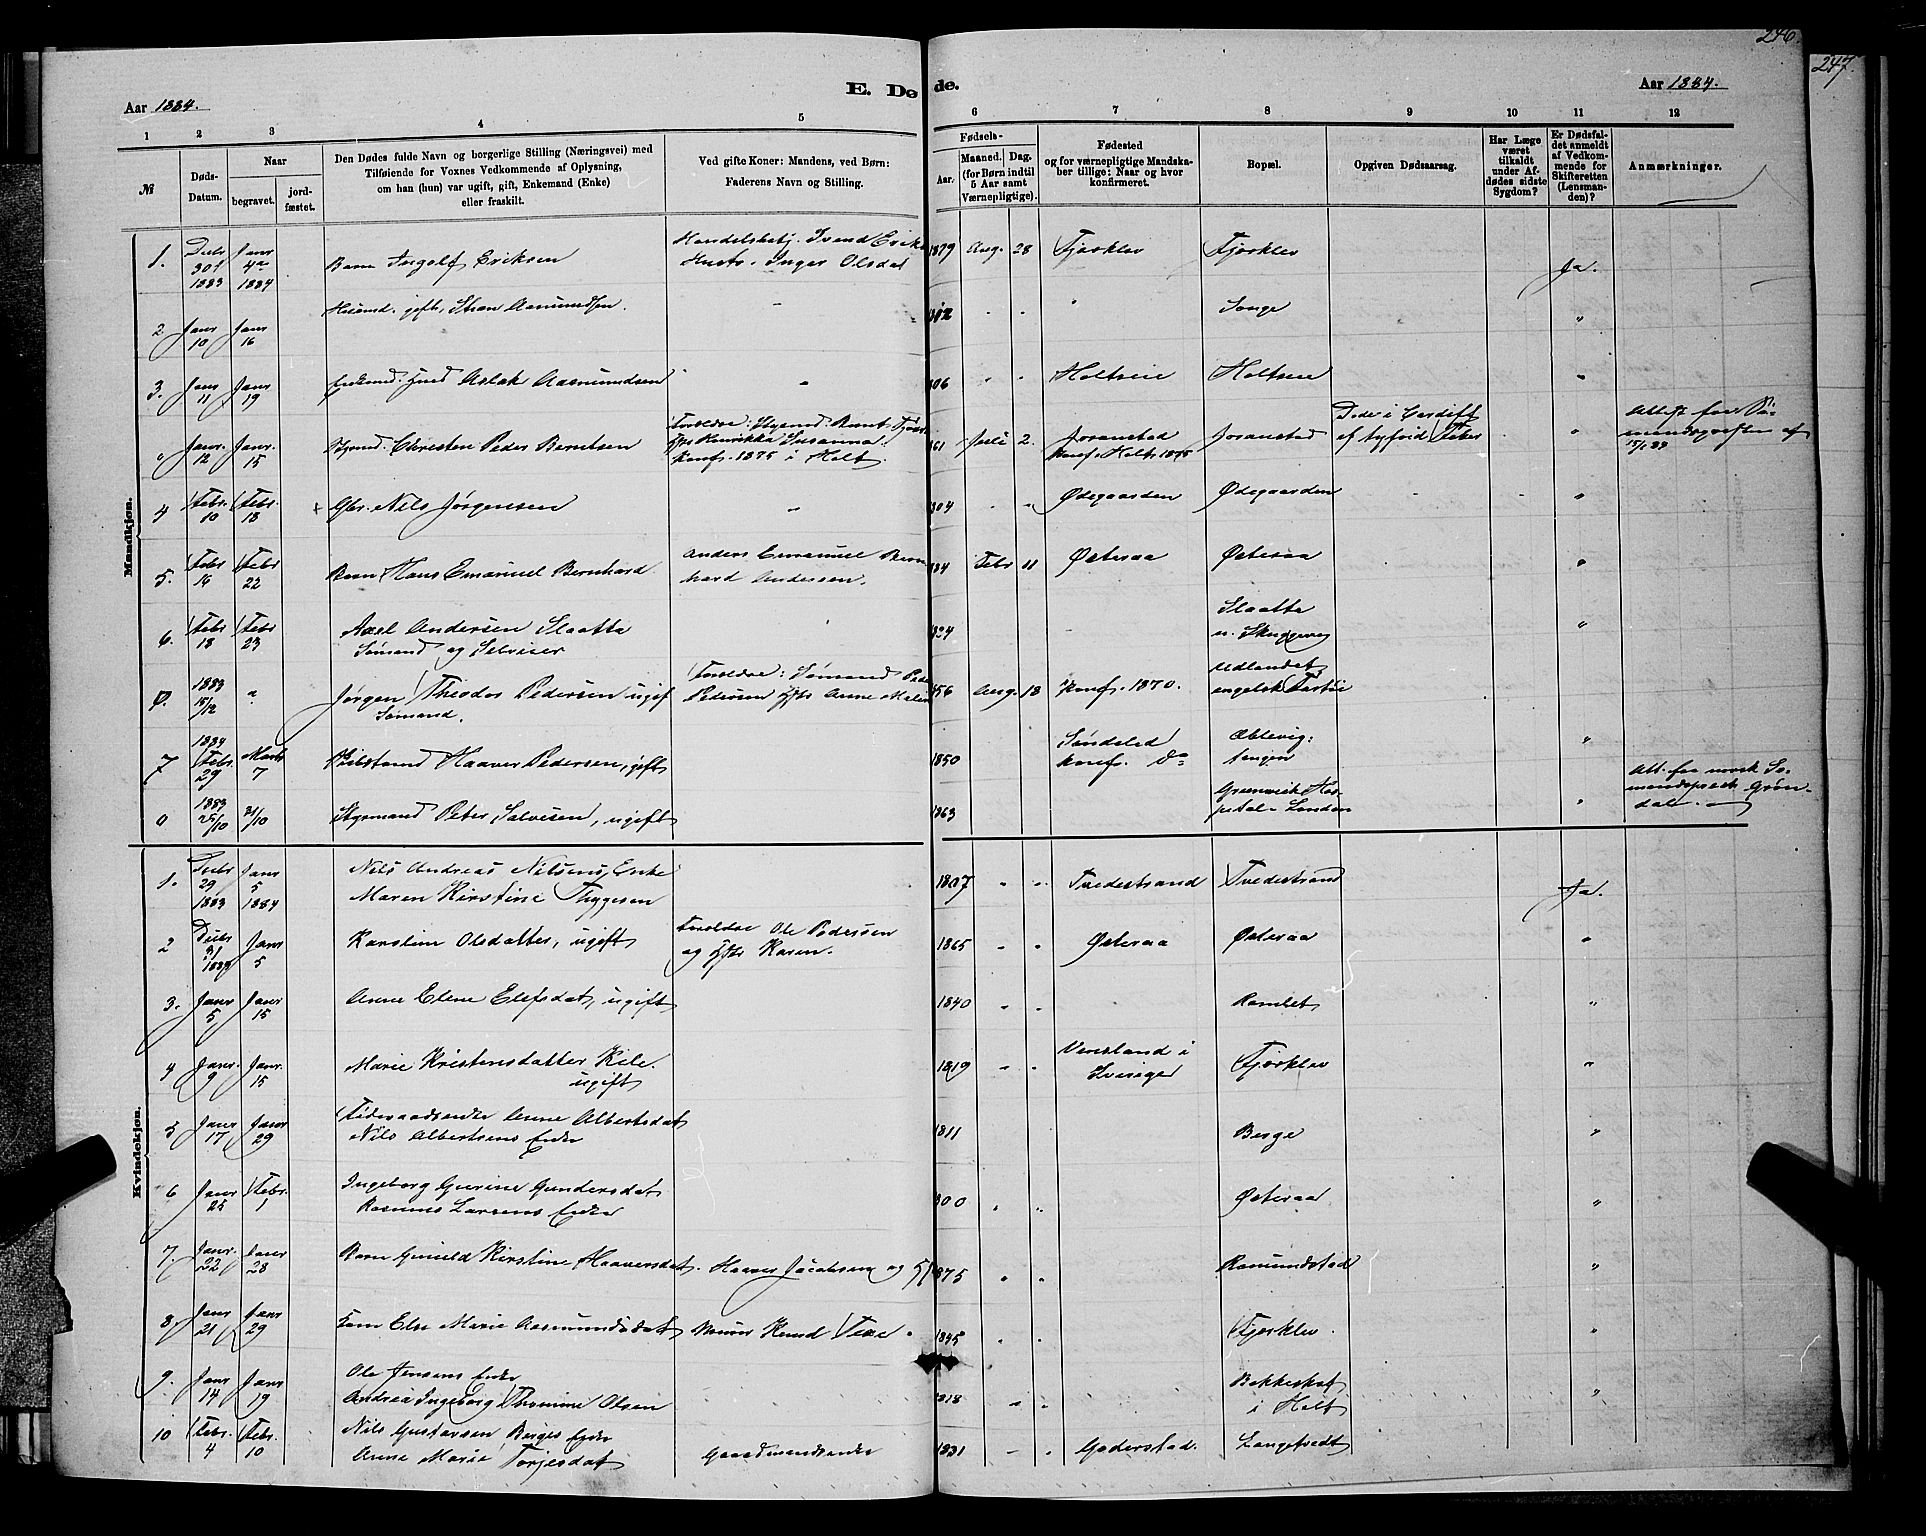 246.
247.
Aar 1884.
E. Døde.
Aar 1884.
1 2 3 4 5 6 7 8 9 10 11 12
№
Døds-
Datum.
Naar
begravet.
jord-
fæstet.
Den Dødes fulde Navn og borgerlige Stilling (Næringsvei) med
Tilføiende for Voxnes Vedkommende af Oplysning,
om han (hun) var ugift, gift, Enkemand (Enke)
eller fraskilt.
Ved gifte Koner: Mandens, ved Børn:
Faderens Navn og Stilling.
Fødsels-
Aar.
Maaned. Dag.
(for Børn indtil
5 Aar samt
Værnepligtige).
Fødested
og for værnepligtige Mandska-
ber tillige: Naar og hvor
konfirmeret.
Bopæl.
Opgiven Dødsaarsag.
Har Læge
været
tilkaldt
under Af-
dødes sidste
Sygdom?
Er Dødsfal-
det anmeldt
af Vedkom-
mende for
Skifteretten
(Lensman-
den)?
Anmærkninger.
Mandkjøn.
1. Decbr 30t 1883 Janr 4de 1884 Barn Ingolf Eriksen Handelsbetj. Svend Erik
Hustr. Inger Olsdat 1879 Aug. 28 Fjærklev Fjærklev Ja.
2 Janr 10 Janr 16 Husmd. gift, Aasmundsen. " " Songe "
3. Janr 11 Janr 19 Enkemd. Aslak Aasmundsen " 806 " " Holtseie Holtseie "
" Janr. 12 Janr. 15 Christen Peder Berntsen Forældre: Styrmd Bernt
Henrikke Susanna.
konf. 1875 i Holt. 61 Juli 2. Joranstad
konf. Holt 1875 Joranstad Døde i Cardiff
af tyfoid Feber " Attest fra Sø-
mandspræsten af
4 Febr. 10 Febr. 18 + Nils Jørgensen " 804 " " Ødegaarden Ødegaarden - - "
5. Febr 16 Febr 22 Barn Hans Emanuel Bernhard. Anders Emanuel Bern
hard Andersen. 84 Febr 11 Østeraa Østeraa "
6. Febr 18 Febr 23 Axel Andersen Slaatta
Sømand og Selveier 1824 Slaatta
u. "
0. 1883 15/12 " Jørgen Theodor Pedersen ugift
Sømand. Forældre: Sømand Peder
Pedersen Anne Malene 56 Aug. 18 Konf. 1870. Udlandet
engelsk
7 1884 Febr. 29 Marts 7 Haaver Pedersen, gift 1850 Søndeled
konf. Do Æblevig-
tangen "
0 1883 25/10 31/10 Styrmand Peter Salvesen, ugift 1863 Greenwich Hos-
pital - London " Att. fra norsk Sø-
mandspræst Grøn-
dal.
Kvindekjøn.
1. Decbr 29 1883 Janr 5 1884 Nils Andreas Nilsens Enke
Maren Kirstine Thygesen 1807 " " Tvedestrand Tvedestrand Ja.
2 Decbr 31 1883 Janr 5 Karstine Olsdatter, ugift Forældre Ole Pedersen
og Karen. 1865 " " Østeraa Østeraa "
3. Janr 5 Janr 15 Anne Elene Elefsdat, ugift 1840 " " Ramlet "
4 Janr. 9 Janr. 15 Marie Kristensdatter Kile.
ugift 1819 " " Vermland i
Sverige Fjærklev "
5 Janr 17 Janr 29 Anne Albertsdat
Nils Albertsens Enke 1811 Berge "
6 Janr 25 Febr. 1 Ingeborg Gurine Gundersdat
Rasmus Larsens Enke 800 " " Østeraa "
7. Janr. 22 Janr 28 Barn Gunild Kirstine Haaversdat. Haaver Jacobsen og 1875 " " Ramundstad "
8. Janr 21 Janr 29 Else Marie Aasmundsdat Murer Knud 1845 " " Fjærklev. "
9. Janr 14 Janr 19 Ole Jensens Enke
Andrea Ingeborg Thomine Olsen 1818 " " Bakkeskat
i Holt "
10 Febr. 4 Febr. 10 Nils Gustavsen Berges Enke
Anne Marie Torjesdat Gaardmandsenke 1831 " " Gjerstad. Langetvedt "